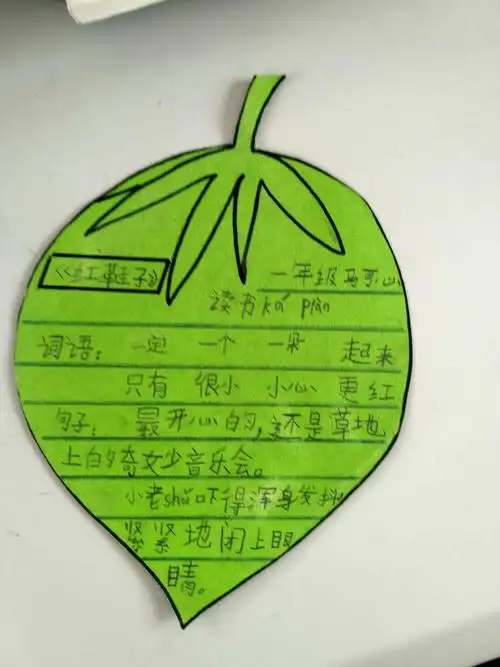 《红鞋子》
一年级马可心
读书kǎ piàn
词语：一定 一个 一朵 起来
只有 很小 小心 更红
句子：最开心的，还是草地
上的奇女少音乐会。
小老shǔ吓得浑身发抖
紧紧地闭上眼
睛。